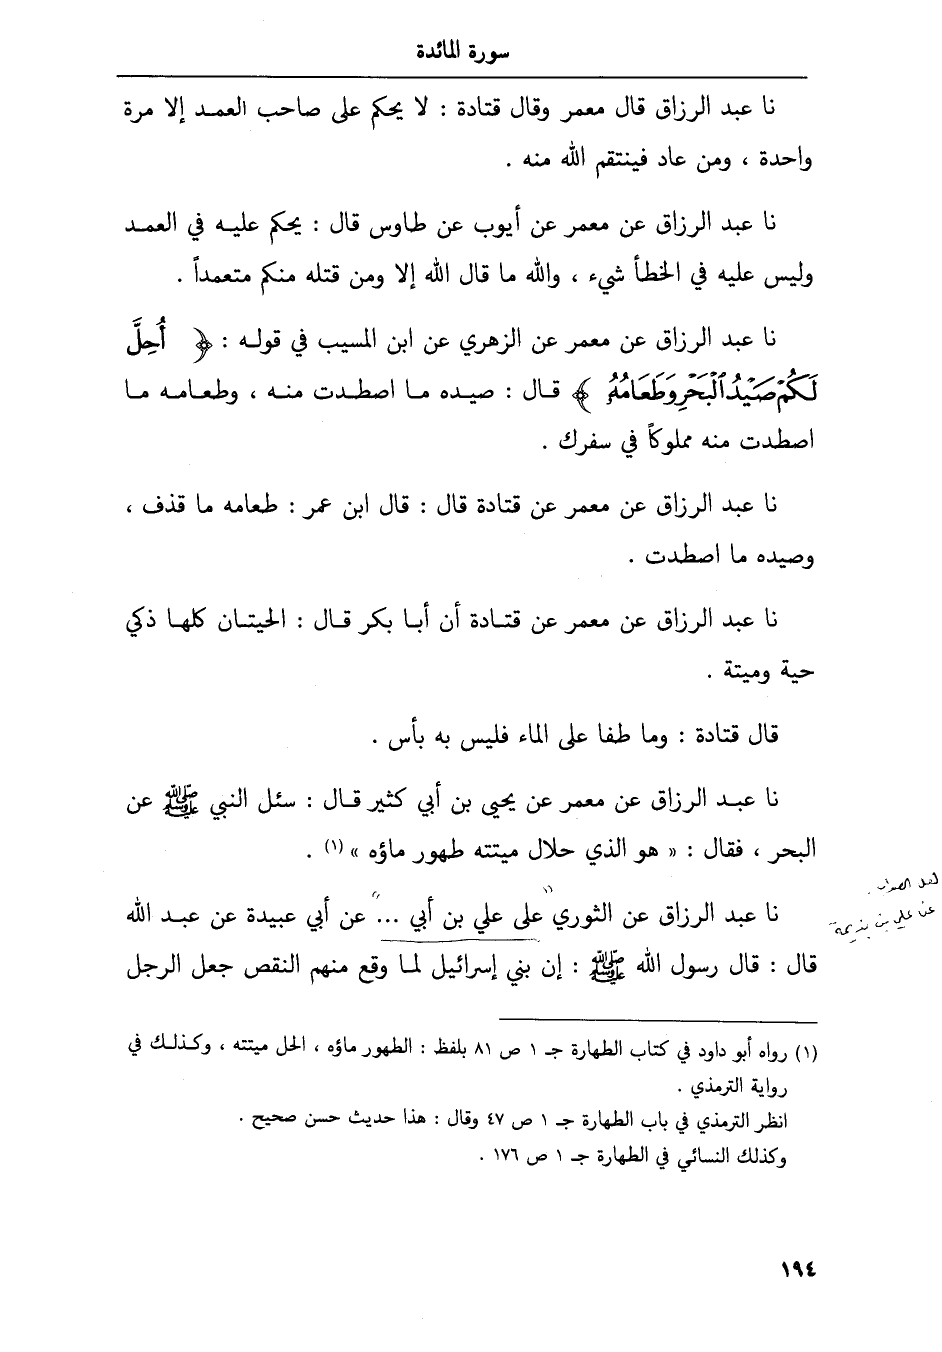 سورة المائدة
نا عبد الرزاق قال معمر وقال قتادة : لا يحكم على صاحب العمد إلا مرة
واحدة ، ومن عاد فينتقم الله منه .
نا عبد الرزاق عن معمر عن أيوب عن طاوس قال : يحكم عليه في العمد
وليس عليه في الخطأ شيء ، والله ما قال الله إلا ومن قتله منكم متعمداً .
نا عبد الرزاق عن معمر عن الزهري عن ابن المسيب في قوله : ﴿ أُحِلَّ
لَكُمْ صَيْدُ ٱلْبَحْرِ وَطَعَامُهُۥ ﴾ قال : صيده ما اصطدت منه ، وطعامه ما
اصطدت منه مملوكاً في سفرك .
نا عبد الرزاق عن معمر عن قتادة قال : قال ابن عمر : طعامه ما قذف ،
وصيده ما اصطدت .
نا عبد الرزاق عن معمر عن قتادة أن أبا بكر قال : الحيتان كلها ذكي
حية وميتة .
قال قتادة : وما طفا على الماء فليس به بأس .
نا عبد الرزاق عن معمر عن يحيى بن أبي كثير قال : سئل النبي ﷺ عن
البحر ، فقال : « هو الذي حلال ميتته طهور ماؤه » (١) .
نا عبد الرزاق عن الثوري على علي بن أبي ... عن أبي عبيدة عن عبد الله
لعل الصواب
عن علي بن بذيمة
قال : قال رسول الله ﷺ : إن بني إسرائيل لما وقع منهم النقص جعل الرجل
(١) رواه أبو داود في كتاب الطهارة جـ ١ ص ٨١ بلفظ : الطهور ماؤه ، الحل ميتته ، وكذلك في
رواية الترمذي .
انظر الترمذي في باب الطهارة جـ ١ ص ٤٧ وقال : هذا حديث حسن صحيح .
وكذلك النسائي في الطهارة جـ ١ ص ١٧٦ .
١٩٤